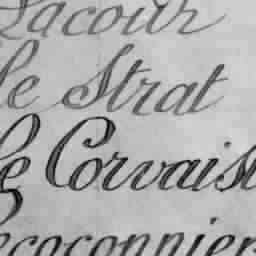 Lacour
le Strat
Le Corvais
ecoconnier